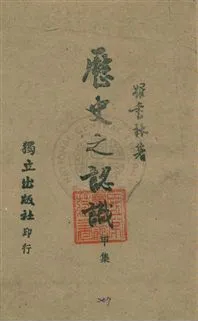 羅香林著
歷史之認識
甲集
獨立出版社印行